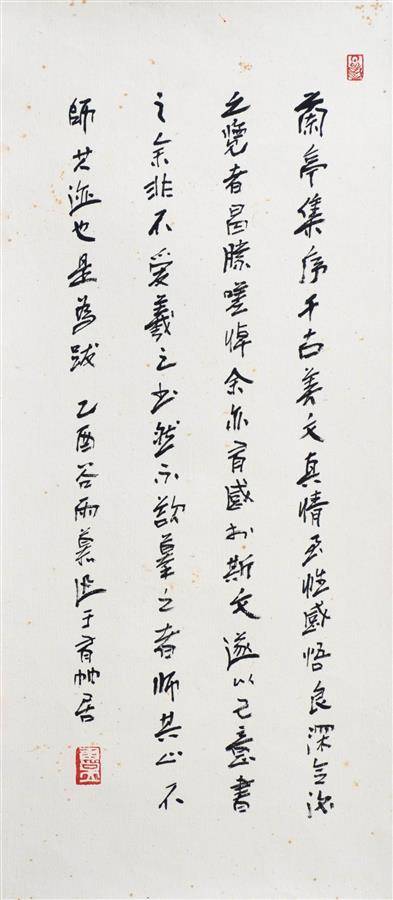 蘭亭集序千古美文真情至性感悟良深令後
之覽者曷勝嗟悼余亦有感於斯文遂以己意書
之余非不愛羲之书然不欲摹之者師其心不
師其迹也是為跋 乙酉谷雨慕于有居